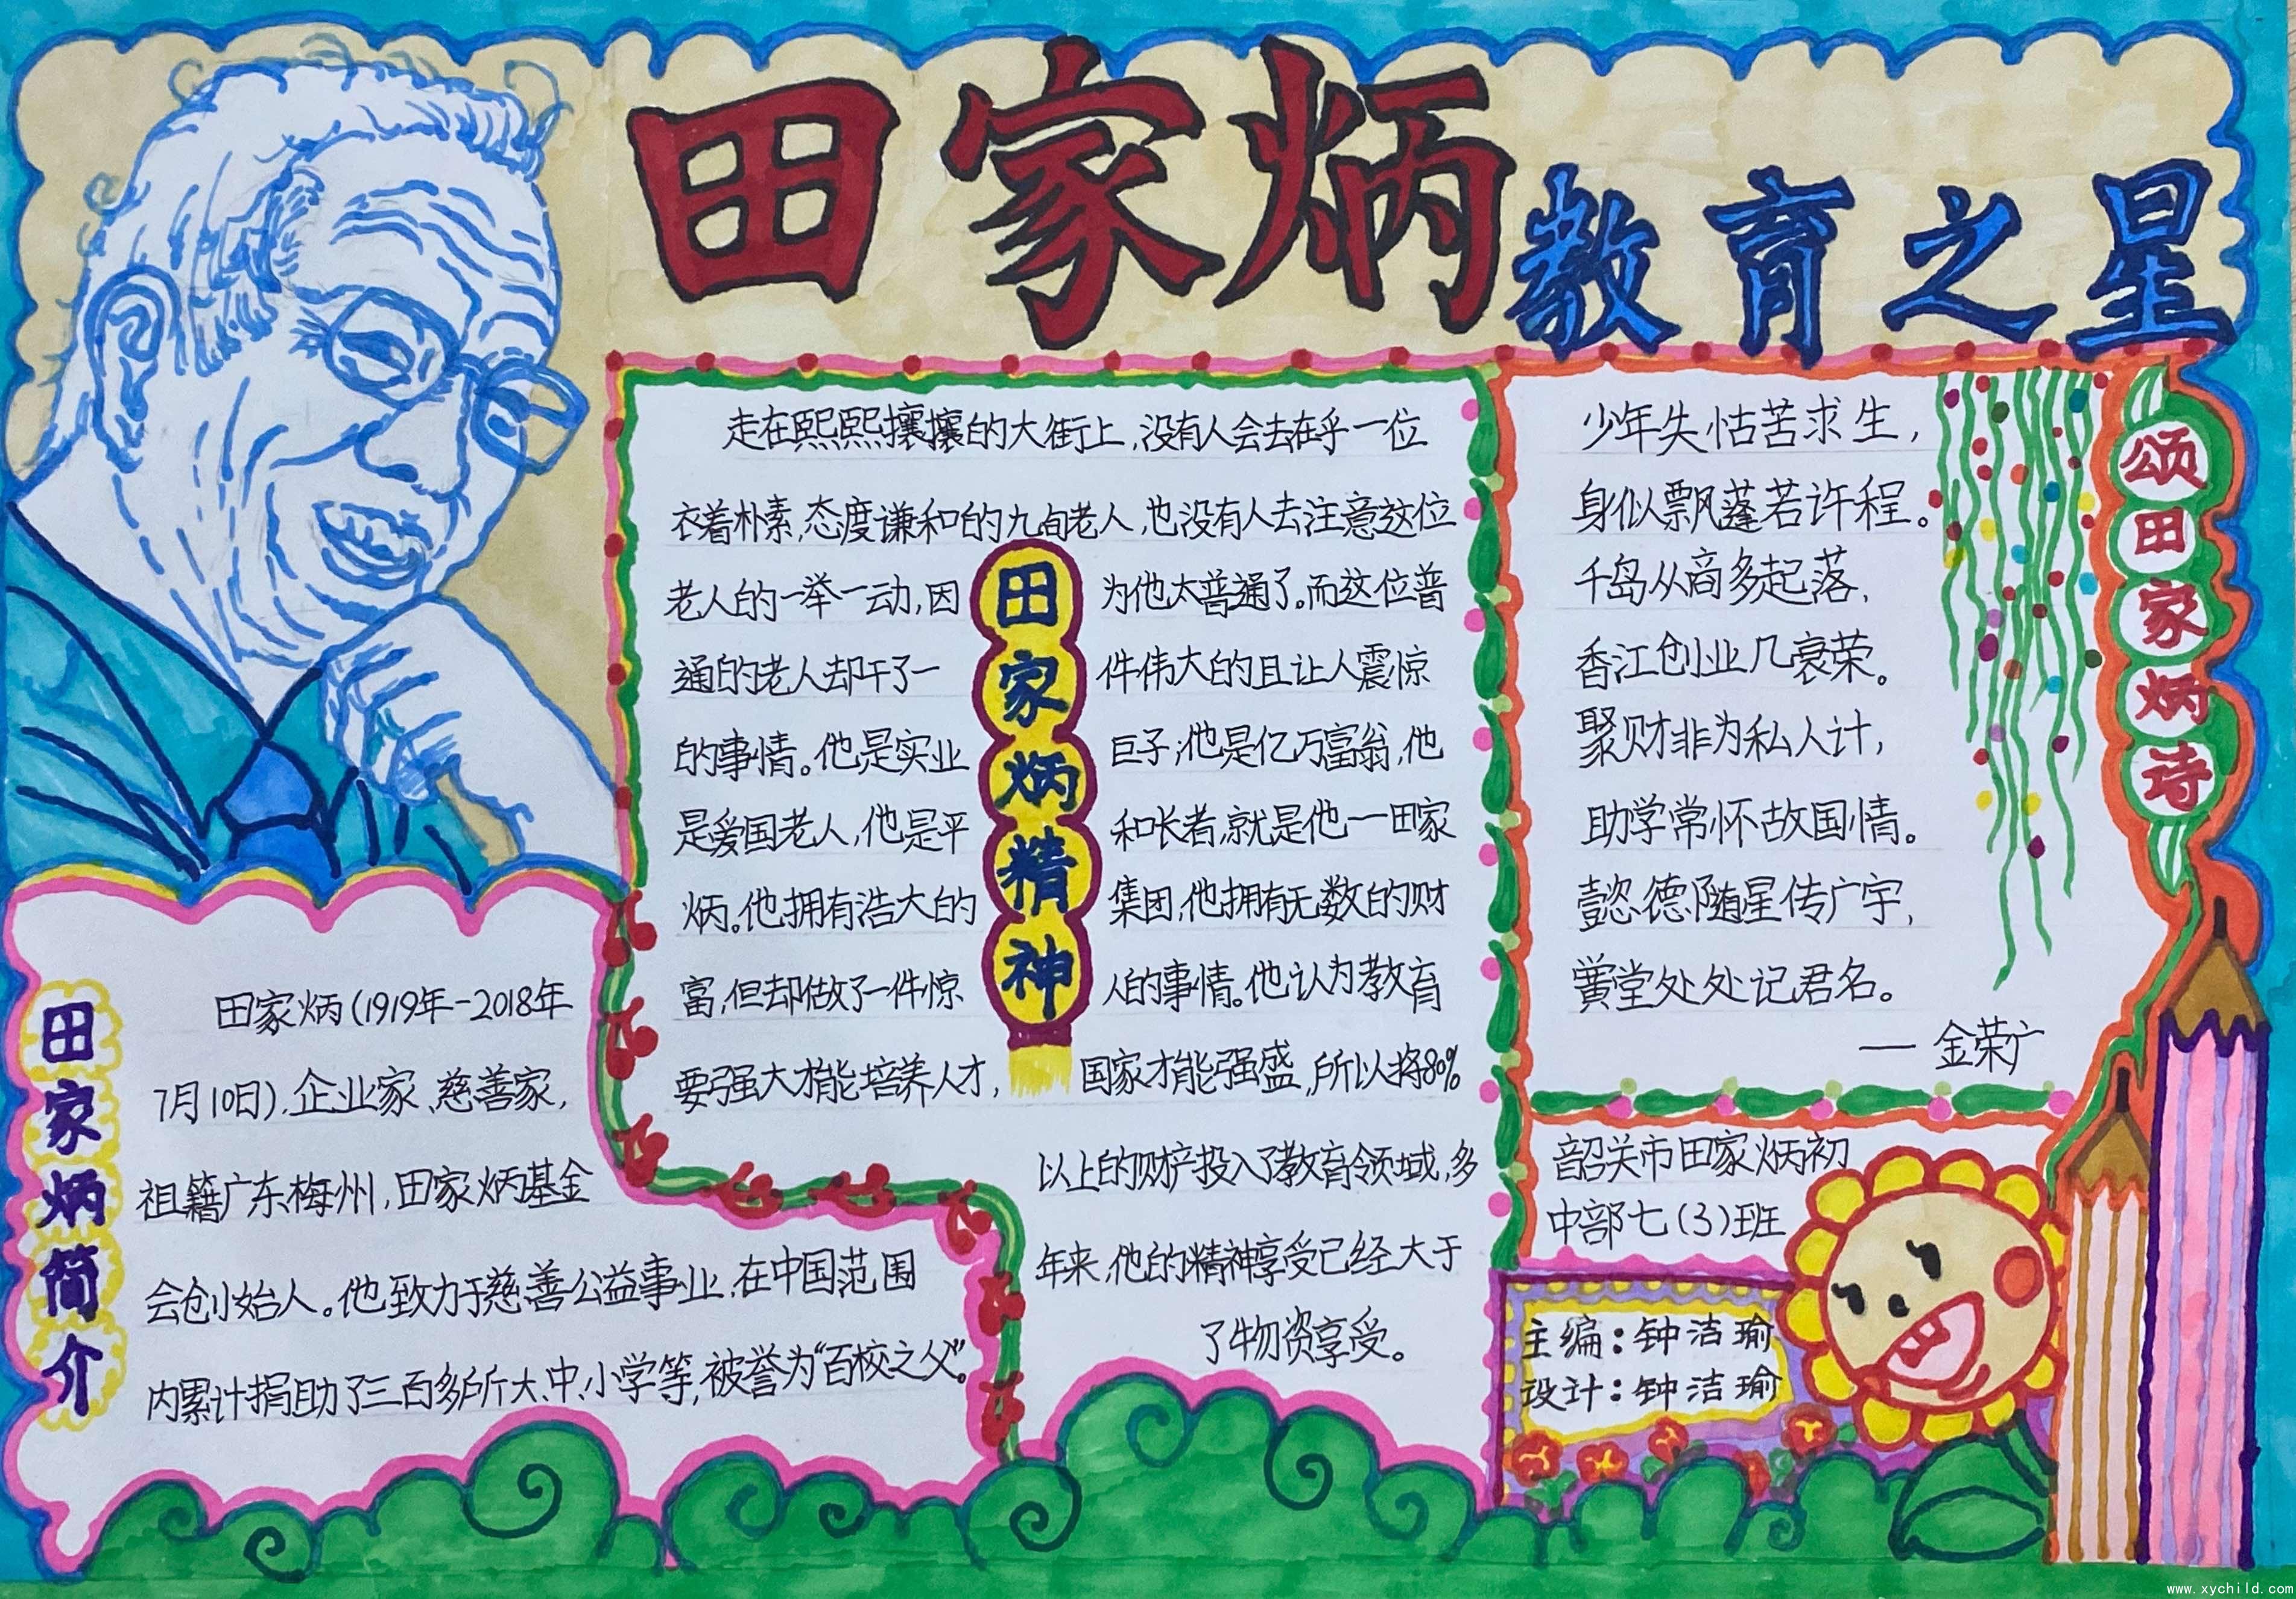 田家炳
教育之星
田家炳精神
走在熙熙攘攘的大街上,没有人会去在乎一位
衣着朴素,态度谦和的九旬老人,也没有人去注意这位
老人的一举一动,因为他太普通了。而这位普
通的老人却干了一件伟大的且让人震惊
的事情。他是实业巨子;他是亿万富翁,他
是爱国老人,他是平和长者,就是他一田家
炳。他拥有浩大的集团,他拥有无数的财
富,但却做了一件惊人的事情。他认为教育
要强大才能培养人才,国家才能强盛,所以将80%
以上的财产投入了教育领域,多
年来,他的精神享受已经大于
了物资享受。
颂田家炳诗
少年失怙苦求生,
身似飘蓬若许程。
千岛从商多起落,
香江创业几衰荣。
聚财非为私人计,
助学常怀故国情。
懿德随星传广宇,
黉堂处处记君名。
— 金荣广
田家炳简介
田家炳(1919年-2018年
7月10日),企业家、慈善家,
祖籍广东梅州,田家炳基金
会创始人。他致力于慈善公益事业,在中国范围
内累计捐助了三百多所大、中、小学等,被誉为“百校之父”。
韶关市田家炳初
中部七(3)班
主编:钟洁瑜
设计:钟洁瑜
www.xychild.com